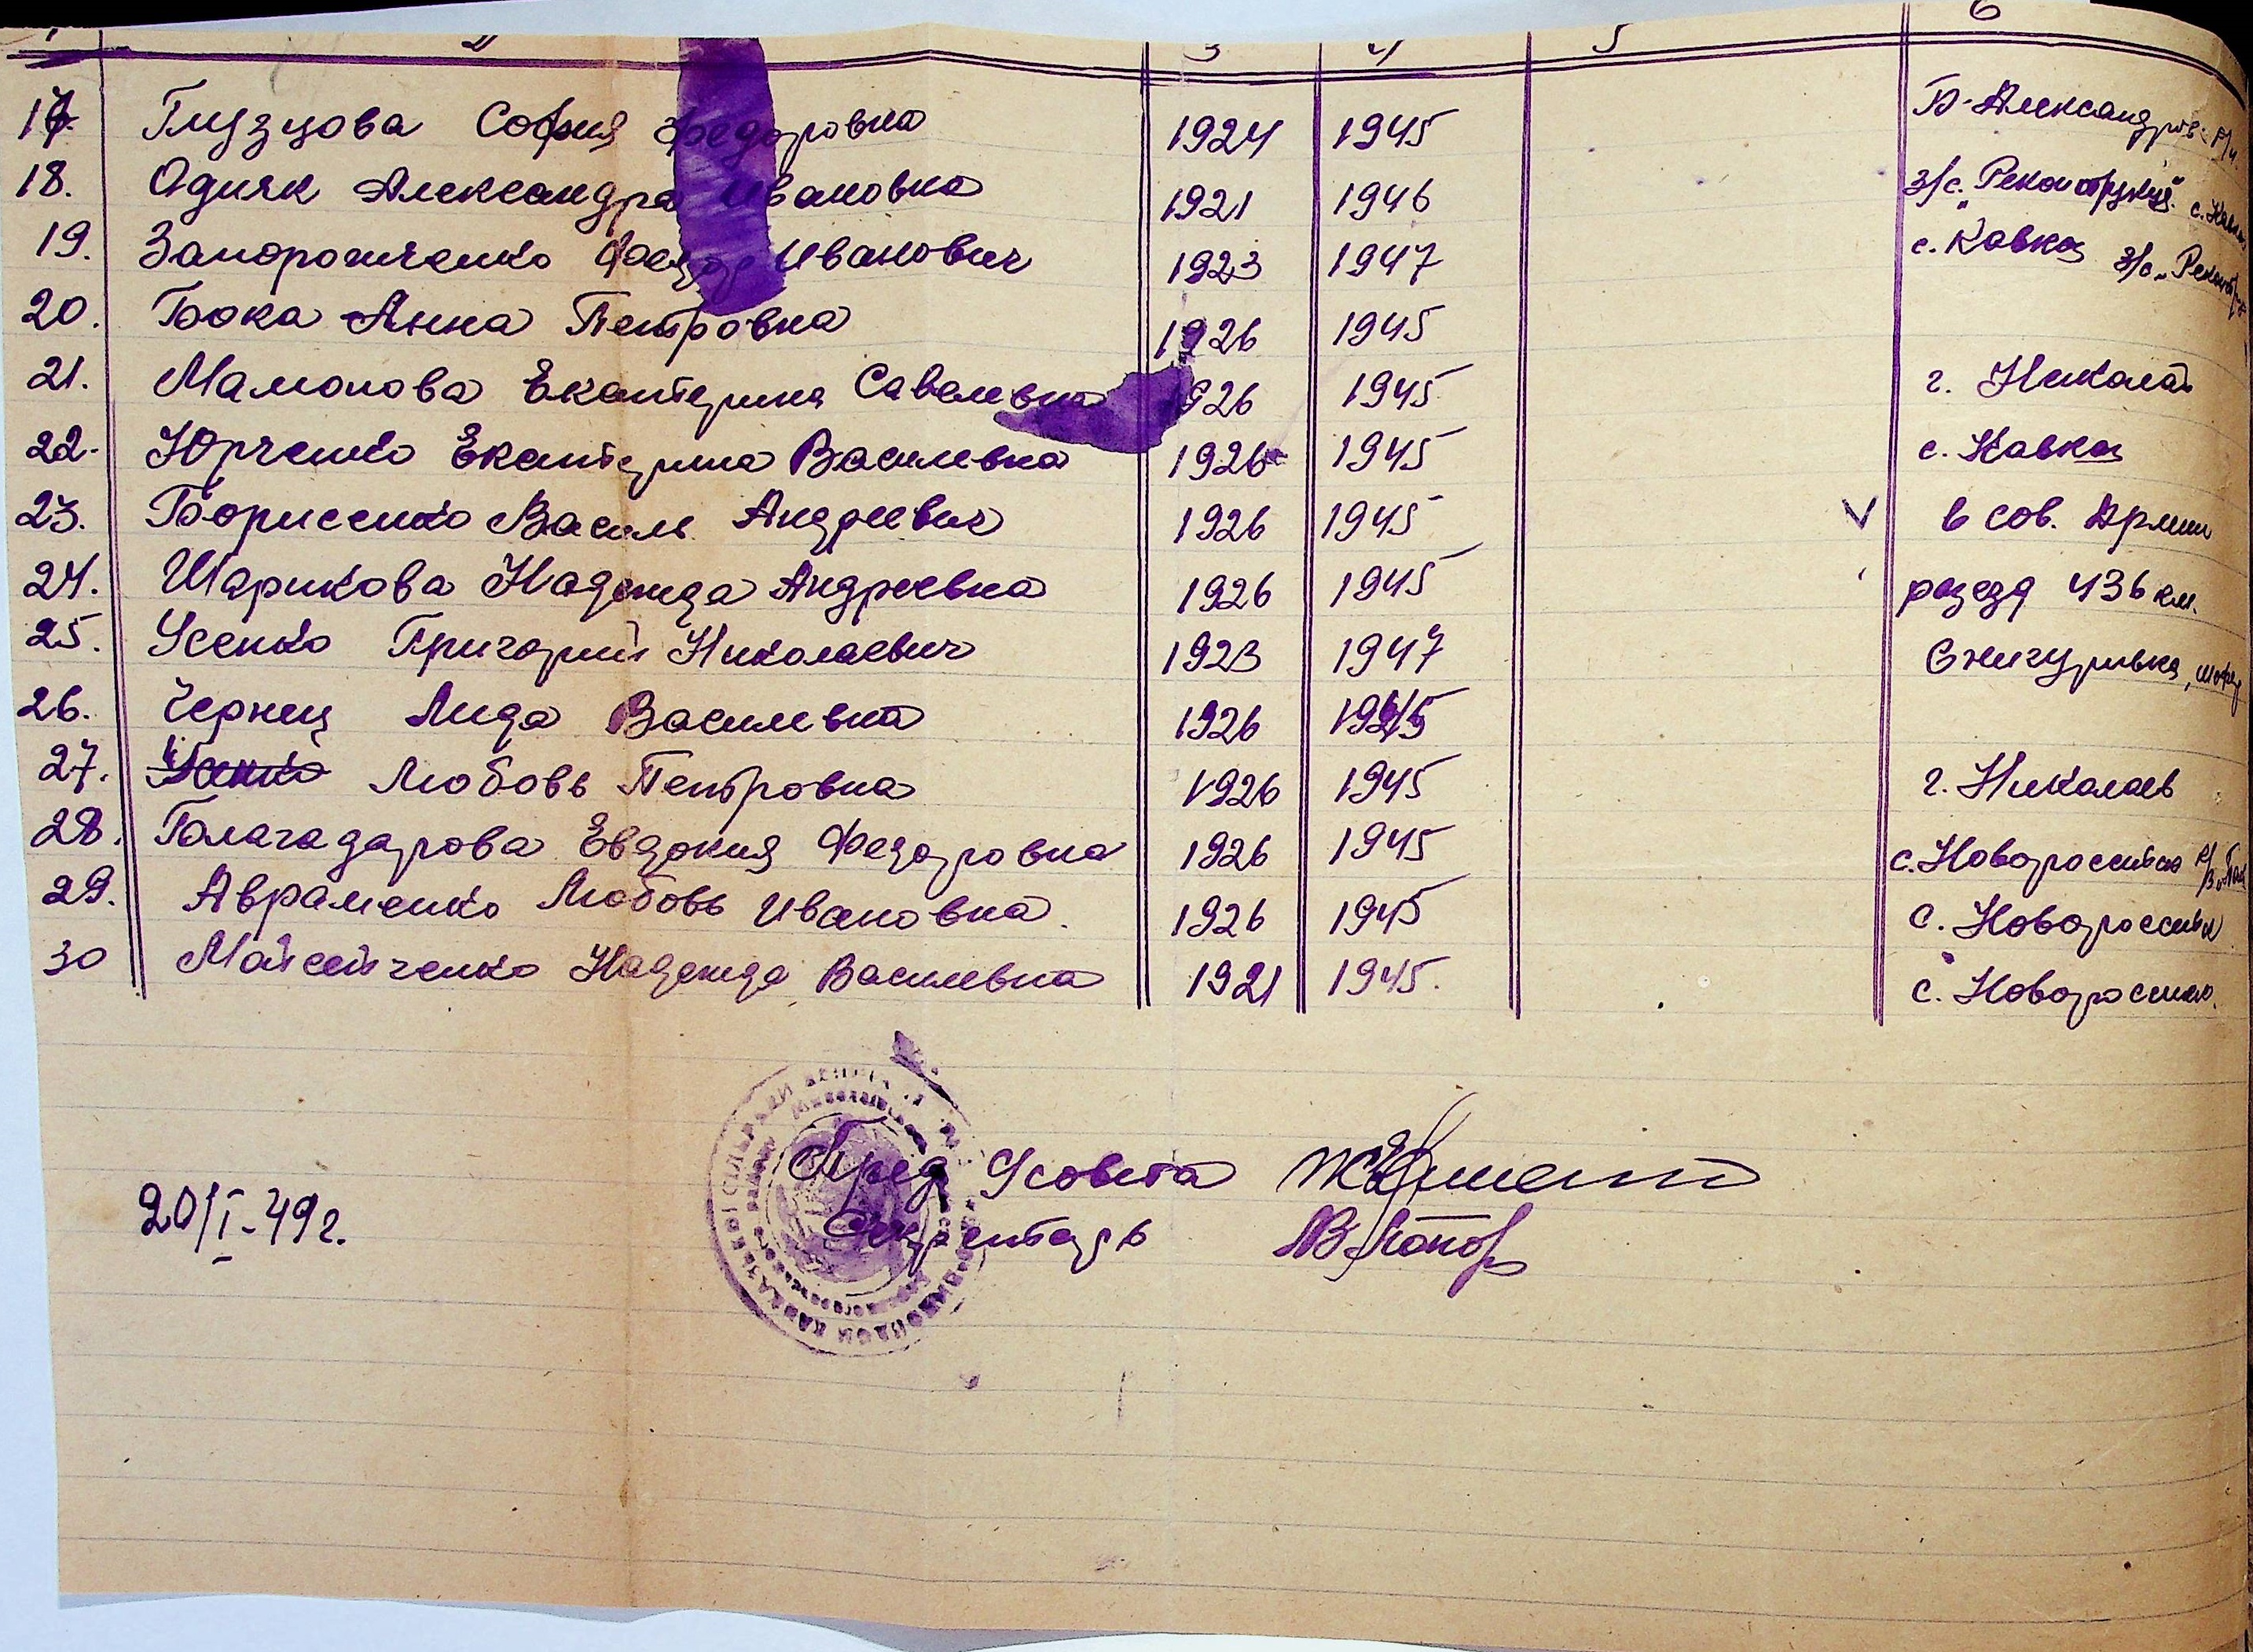 1 2 3 4 5 6
17. Глузцова София Федоровна 1924 1945 Б-Александров.
18. Одияк Александра Ивановна 1921 1946 з/с.
19. Запорожченко Федор Иванович 1923 1947 с. Кавказ з/с
20. Бока Анна Петровна 1926 1945
21. Мамонова Екатерина Савелевна 1926 1945 г. Николаев
22. Юрченко Екатерина Василевна 1926 1945 с. Кавказ
23. Борисенко Василь Андреевич 1926 1945 V в сов. Армии
24. Шарикова Надежда Андреевна 1926 1945 розезд 436 км.
25. Усенко Григорий Николаевич 1923 1947 Снигуривка, шофер
26. Чернец Лида Василевна 1926 1945
27. Усенко Любовь Петровна 1926 1945 г. Николаев
28. Балагадарова Евдокия Федоровна 1926 1945 с. Новоросийск
29. Авраменко Любовь Ивановна. 1926 1945 с. Новоросийск
30 Мойсейченко Надежда Василевна 1921 1945. с. Новоросийск.
Пред с/совета
Секретарь
20/I-49 г.